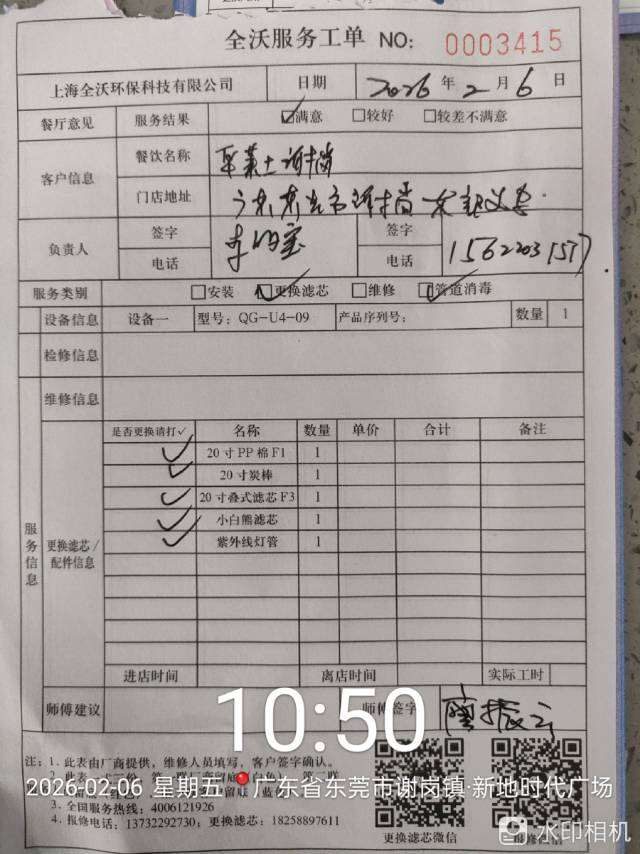 全沃服务工单 NO: 0003415
上海全沃环保科技有限公司 日期 2026 年 2 月 6 日
餐厅意见 服务结果 ☑满意 □较好 □较差不满意
客户信息 餐饮名称 谢岗
门店地址 广东东莞市谢岗
负责人 签字 签字
电话 电话 15622031577
服务类别 □安装 ☑更换滤芯 □维修 ☑管道消毒
设备信息 设备一 型号: QG-U4-09 产品序列号: 数量 1
检修信息
维修信息
服务信息
更换滤芯/配件信息
是否更换请打✓ 名称 数量 单价 合计 备注
✓ 20寸PP棉F1 1
✓ 20寸炭棒 1
✓ 20寸叠式滤芯F3 1
✓ 小白熊滤芯 1
✓ 紫外线灯管 1
进店时间 离店时间 实际工时
师傅建议 师傅签字
10:50
注: 1. 此表由厂商提供, 维修人员填写, 客户签字确认。
2026.02.06 星期五 广东省东莞市谢岗镇·新地时代广场
3. 全国服务热线: 4006121926
4. 报修电话: 13732292730; 更换滤芯: 18258897611
更换滤芯微信
水印相机